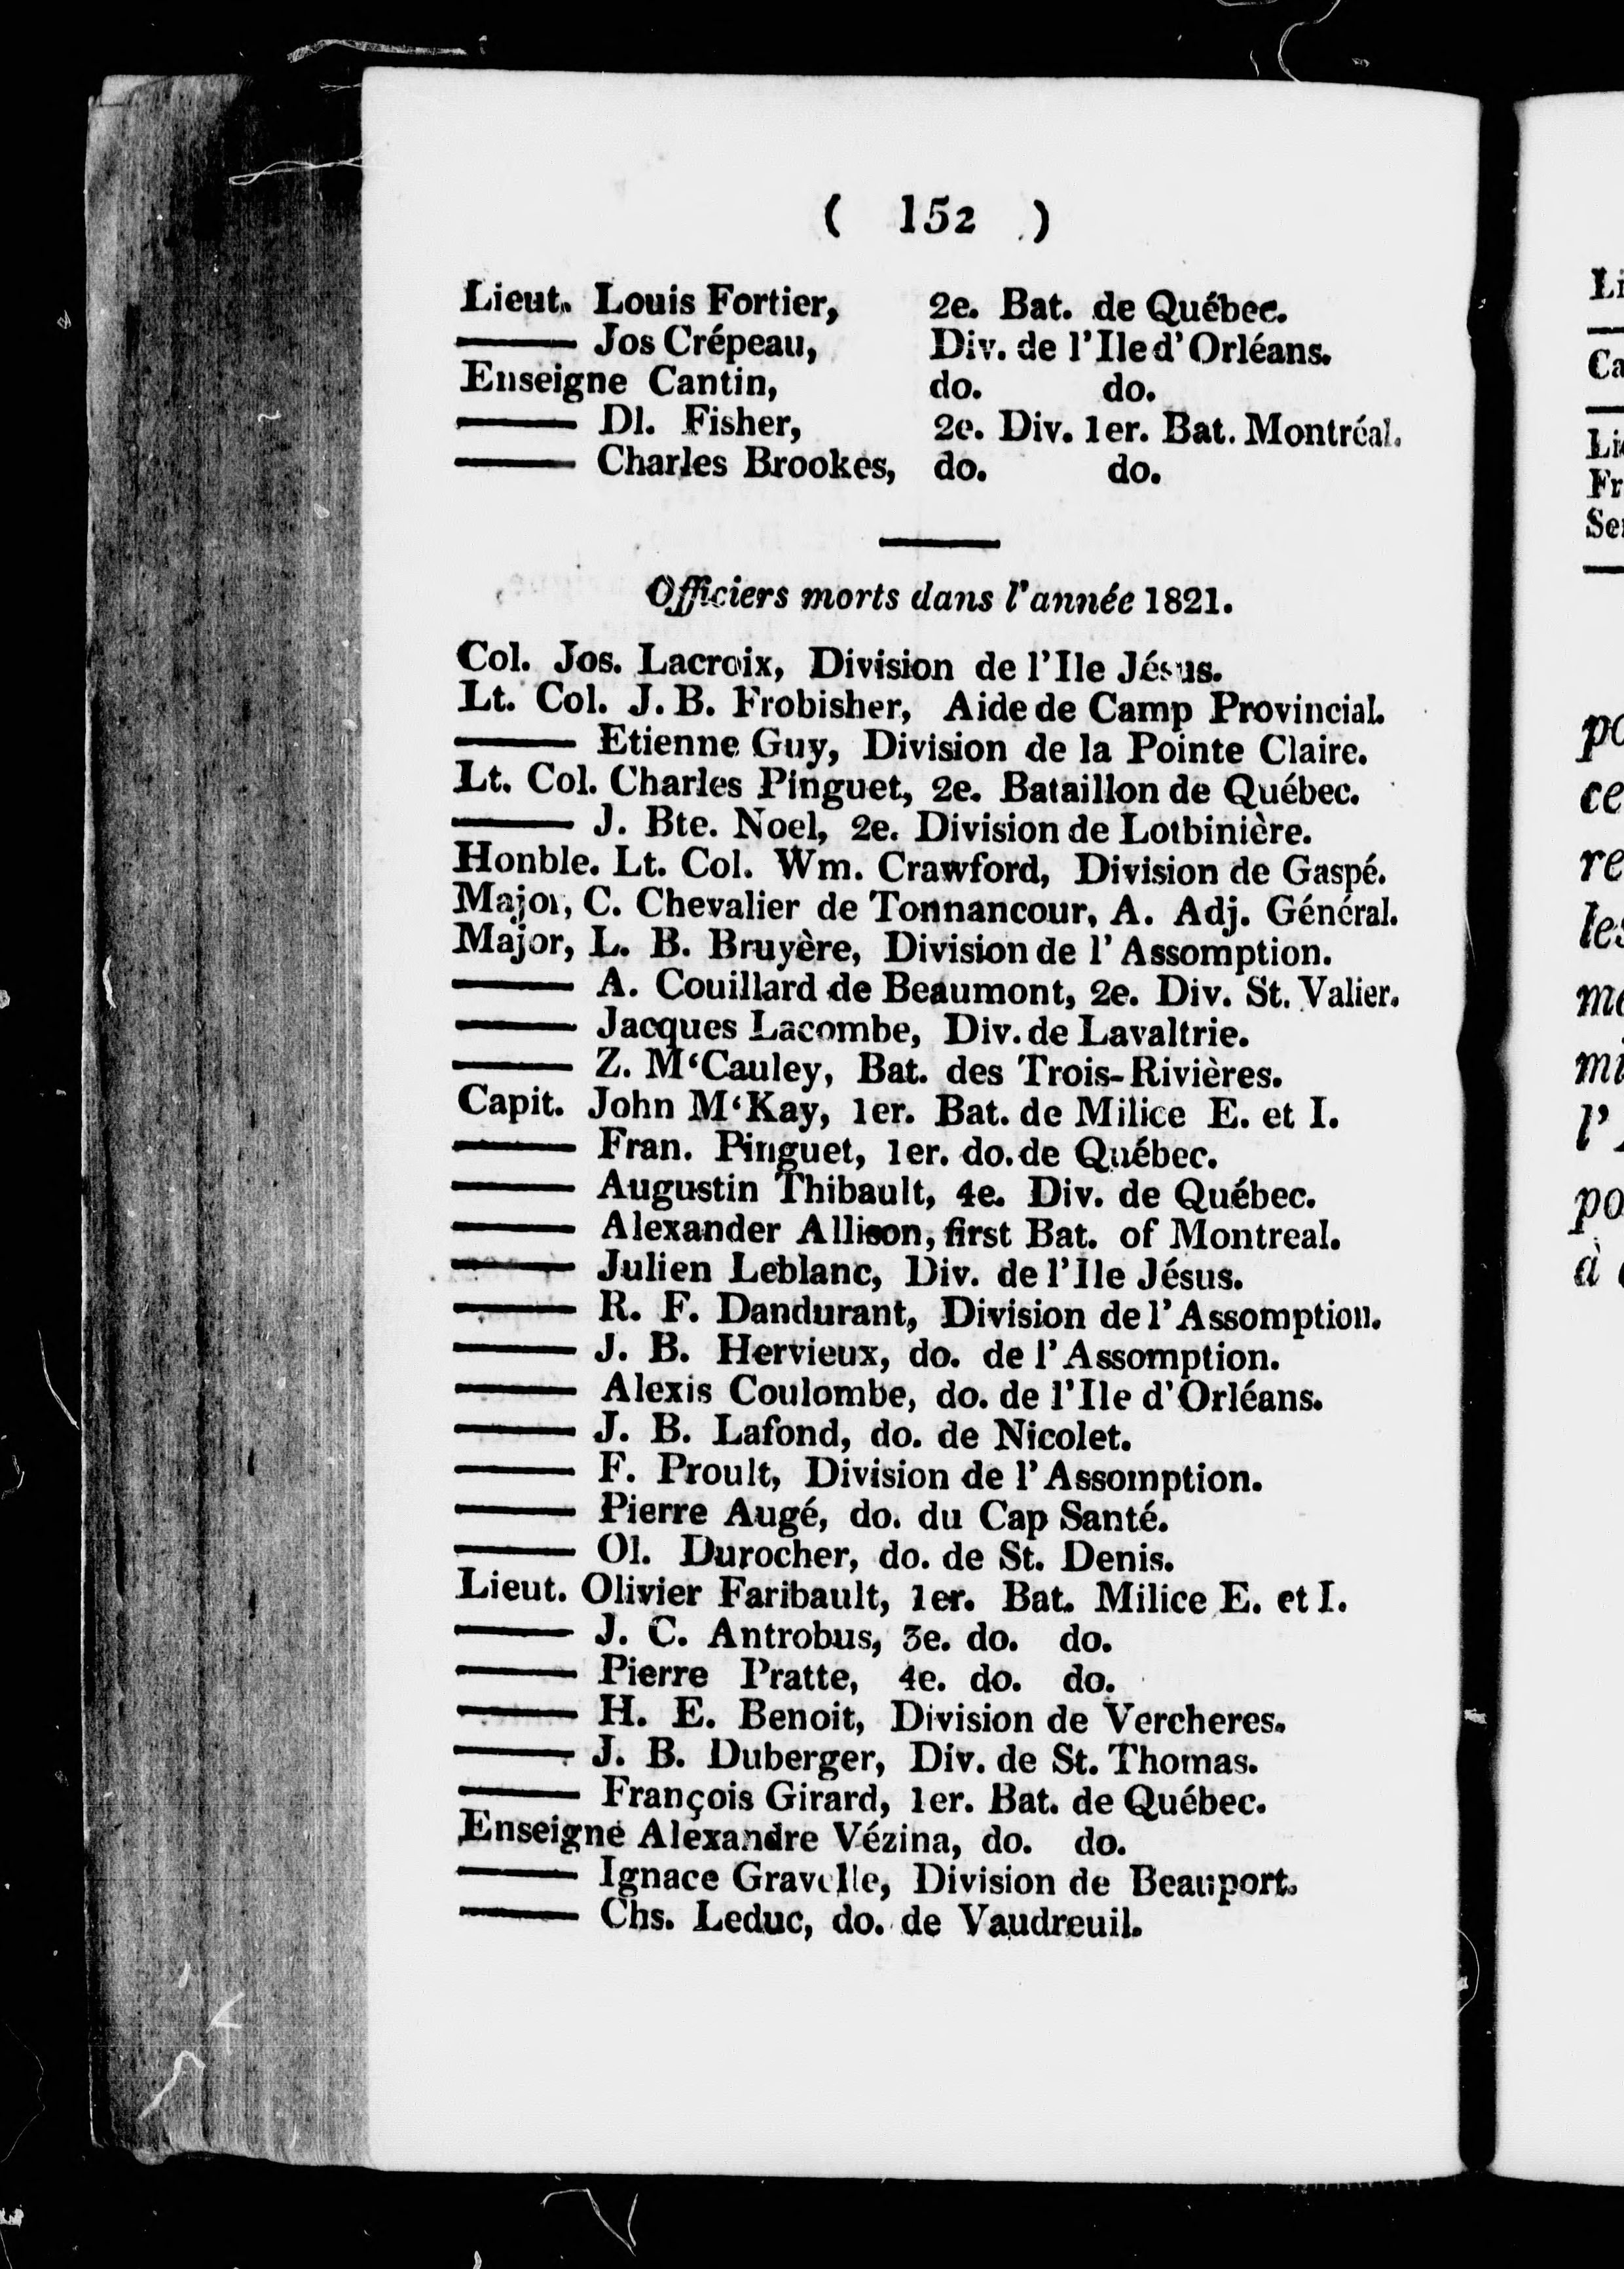 ( 152 )
Lieut. Louis Fortier, 2e. Bat. de Québec.
——— Jos Crépeau, Div. de l'Ile d'Orléans.
Enseigne Cantin, do. do.
——— Dl. Fisher, 2e. Div. 1er. Bat. Montréal.
——— Charles Brookes, do. do.
Officiers morts dans l'année 1821.
Col. Jos. Lacroix, Division de l'Ile Jésus.
Lt. Col. J. B. Frobisher, Aide de Camp Provincial.
——— Etienne Guy, Division de la Pointe Claire.
Lt. Col. Charles Pinguet, 2e. Bataillon de Québec.
——— J. Bte. Noel, 2e. Division de Lotbinière.
Honble. Lt. Col. Wm. Crawford, Division de Gaspé.
Major, C. Chevalier de Tonnancour, A. Adj. Général.
Major, L. B. Bruyère, Division de l'Assomption.
——— A. Couillard de Beaumont, 2e. Div. St. Valier.
——— Jacques Lacombe, Div. de Lavaltrie.
——— Z. M'Cauley, Bat. des Trois-Rivières.
Capit. John M'Kay, 1er. Bat. de Milice E. et I.
——— Fran. Pinguet, 1er. do. de Québec.
——— Augustin Thibault, 4e. Div. de Québec.
——— Alexander Allison, first Bat. of Montreal.
——— Julien Leblanc, Div. de l'Ile Jésus.
——— R. F. Dandurant, Division de l'Assomption.
——— J. B. Hervieux, do. de l'Assomption.
——— Alexis Coulombe, do. de l'Ile d'Orléans.
——— J. B. Lafond, do. de Nicolet.
——— F. Proult, Division de l'Assomption.
——— Pierre Augé, do. du Cap Santé.
——— Ol. Durocher, do. de St. Denis.
Lieut. Olivier Faribault, 1er. Bat. Milice E. et I.
——— J. C. Antrobus, 3e. do. do.
——— Pierre Pratte, 4e. do. do.
——— H. E. Benoit, Division de Vercheres.
——— J. B. Duberger, Div. de St. Thomas.
——— François Girard, 1er. Bat. de Québec.
Enseigne Alexandre Vézina, do. do.
——— Ignace Gravelle, Division de Beauport.
——— Chs. Leduc, do. de Vaudreuil.